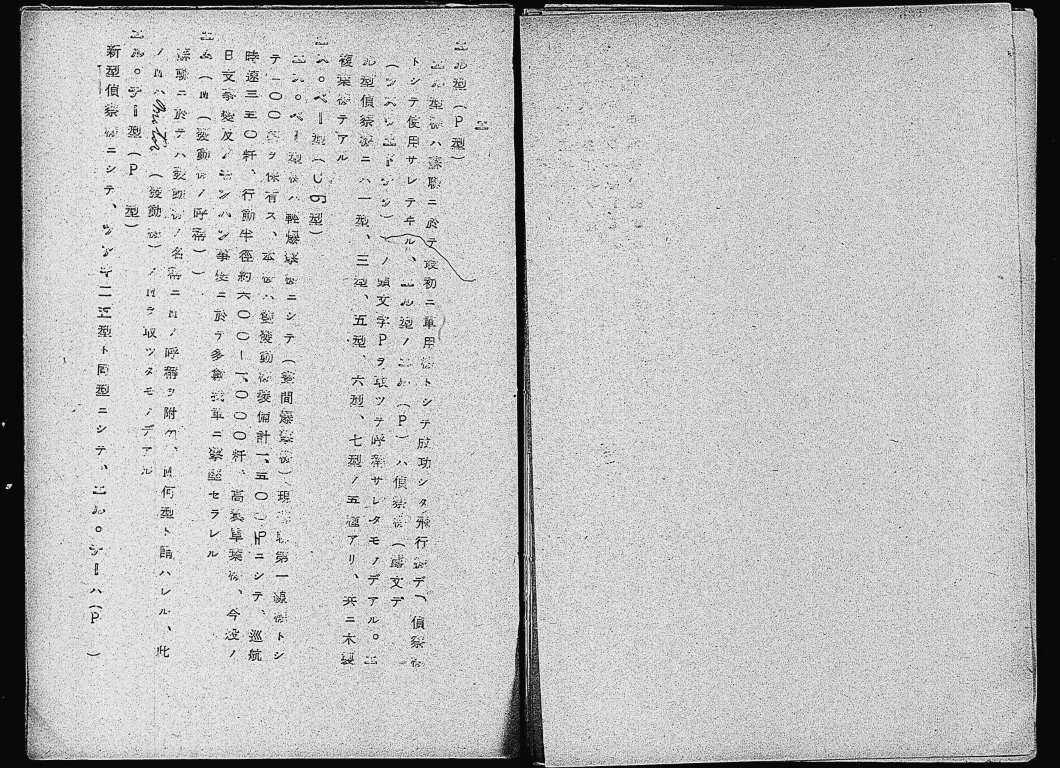 エ
エル型(P型)
エル型機ハ蘇聯ニ於テ最初ニ軍用機トシテ成功シタ飛行機デ、偵察機
トシテ使用サレテヰル、エル型ノエル(P)ハ偵察機(露文デ
ノ頭文字Pヲ取ツテ呼稱サレタモノデアル。エ
ル型偵察機ニハ一型、三型、五型、六型、七型ノ五種アリ、共ニ木製
複葉機デアル
エス。ベー型(CБ型)
エス。ベー型機ハ輕爆撃機ニシテ(晝間爆撃機)現蘇聯第一線機トシ
テ一〇〇機ヲ保有ス、本機ハ雙發動機裝備計一、五〇〇HPニシテ、巡航
時速三五〇粁、行動半徑約六〇〇—一、〇〇〇粁、高翼單葉機、今次ノ
日支事變及ノモンハン事件ニ於テ多數我軍ニ撃墜セラレル
エム(M(發動機ノ呼稱))
蘇聯ニ於テハ發動機ノ名稱ニMノ呼稱ヲ附シ、M何型ト謂ハレル、此
ノMハ(發動機)ノMヲ取ツタモノデアル
エル。ゼー型(P 型)
新型偵察機ニシテ、型ト同型ニシテ、エル。ゼーハ(P )